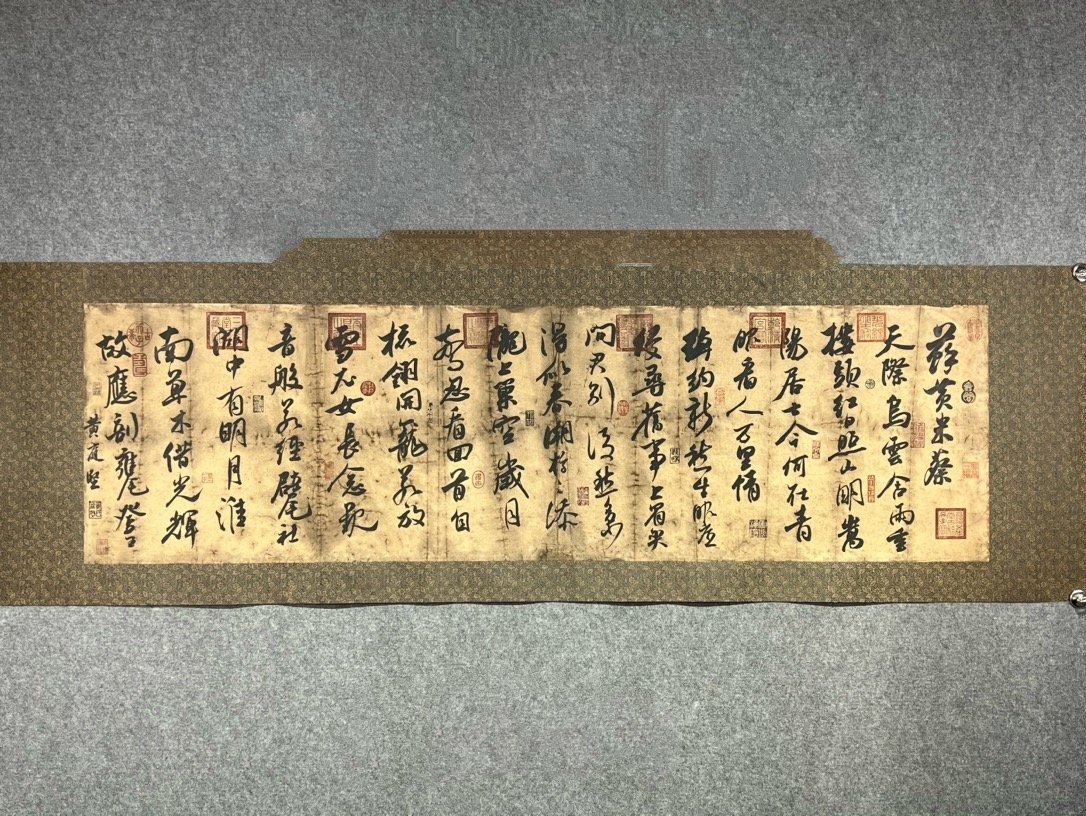 蘇黄米蔡
天際烏雲含雨重
樓頭紅日照山明嵩
陽居士今何在青
眼看人万里情
綽約新生眼底
侵尋舊事上眉尖
問君別後愁多
得似春潮夜夜添
隴上巢空歲月
驚忍看回首自
梳翎開籠若放
雪衣女長念觀
音般若經甓社
湖中有明月淮
南草木借光輝
故應剖登
黄庭堅